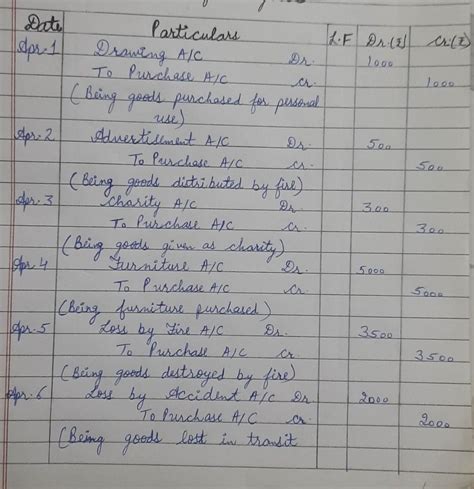 Date Particulars L.F Dr.(₹) Cr.(₹)
Apr.1 Drawing A/C Dr. 1000
To Purchase A/C Cr. 1000
(Being goods purchased for personal
use)
Apr.2 Advertisement A/C Dr. 500
To Purchase A/C Cr. 500
(Being goods distributed by fire)
Apr.3 Charity A/C Dr 300
To Purchase A/C Cr. 300
(Being goods given as charity)
Apr.4 Furniture A/C Dr. 5000
To Purchase A/C Cr. 5000
(Being furniture purchased)
Apr.5 Loss by Fire A/C Dr. 3500
To Purchase A/C Cr. 3500
(Being goods destroyed by fire)
Apr.6 Loss by Accident A/C Dr. 2000
To Purchase A/C Cr. 2000
(Being goods lost in transit